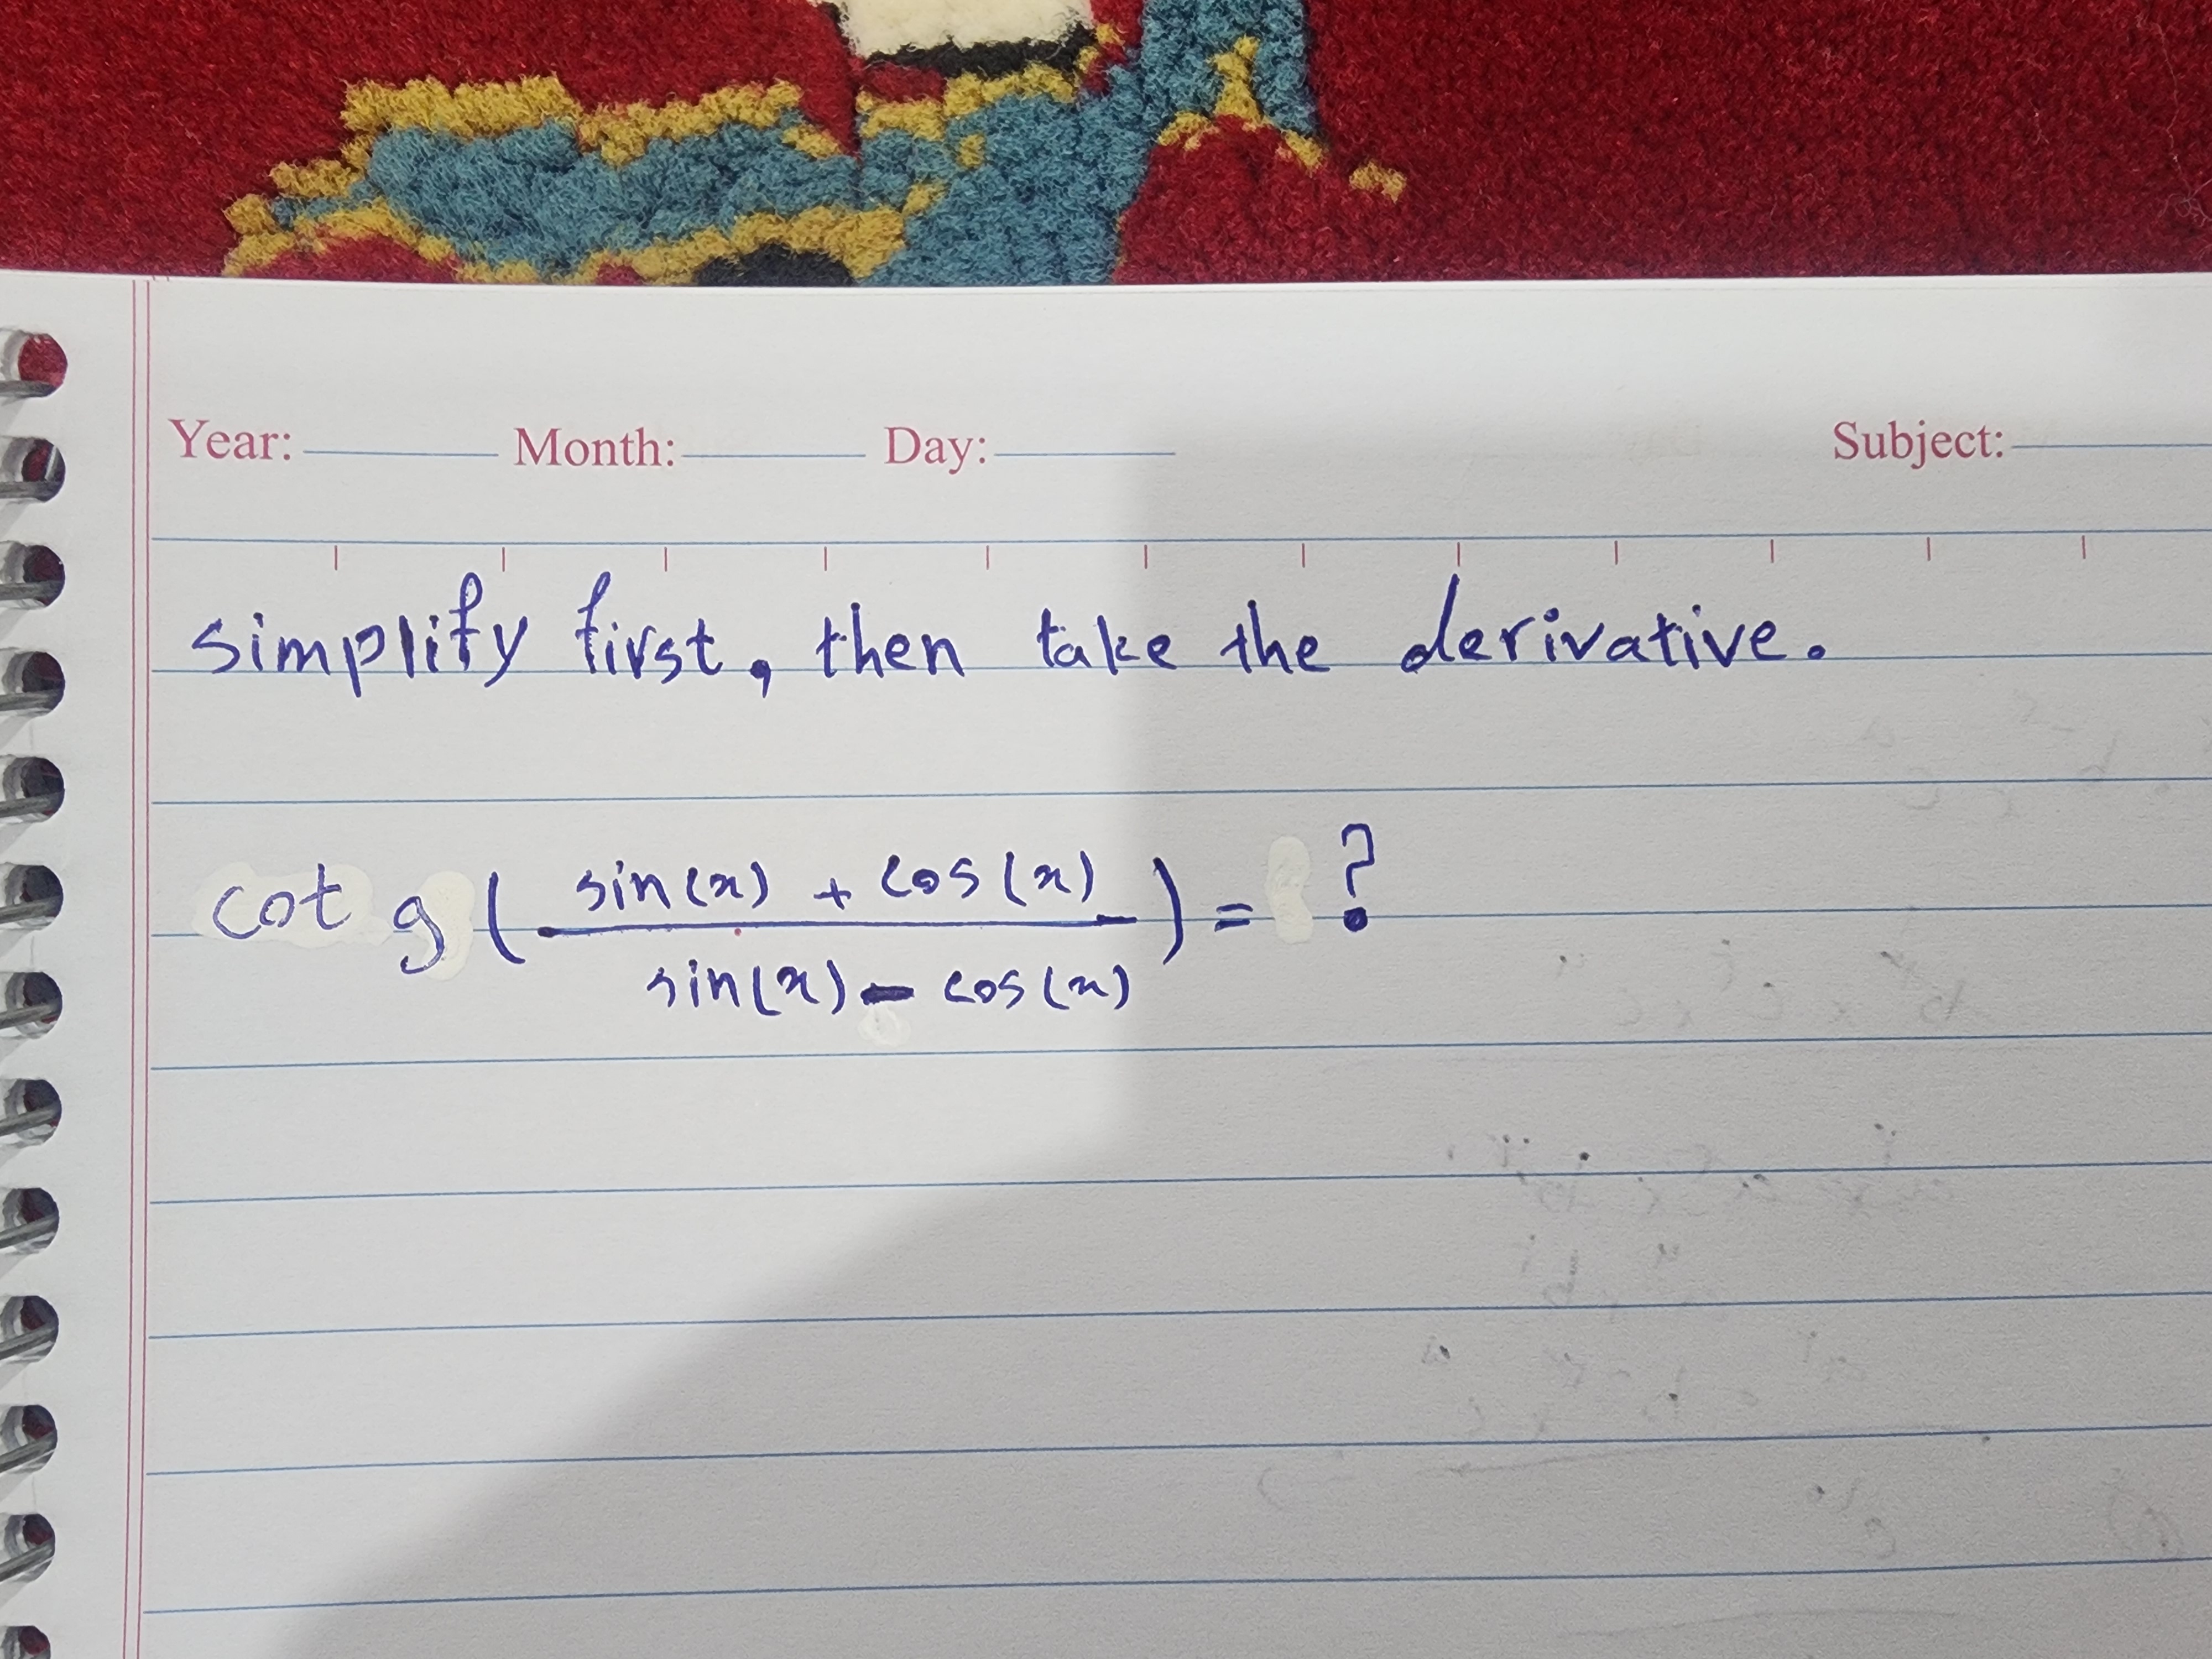 Year: Month: Day: Subject:
simplify first, then take the derivative.
cot g ( sin(x) + cos(x) / sin(x) - cos(x) ) = ?